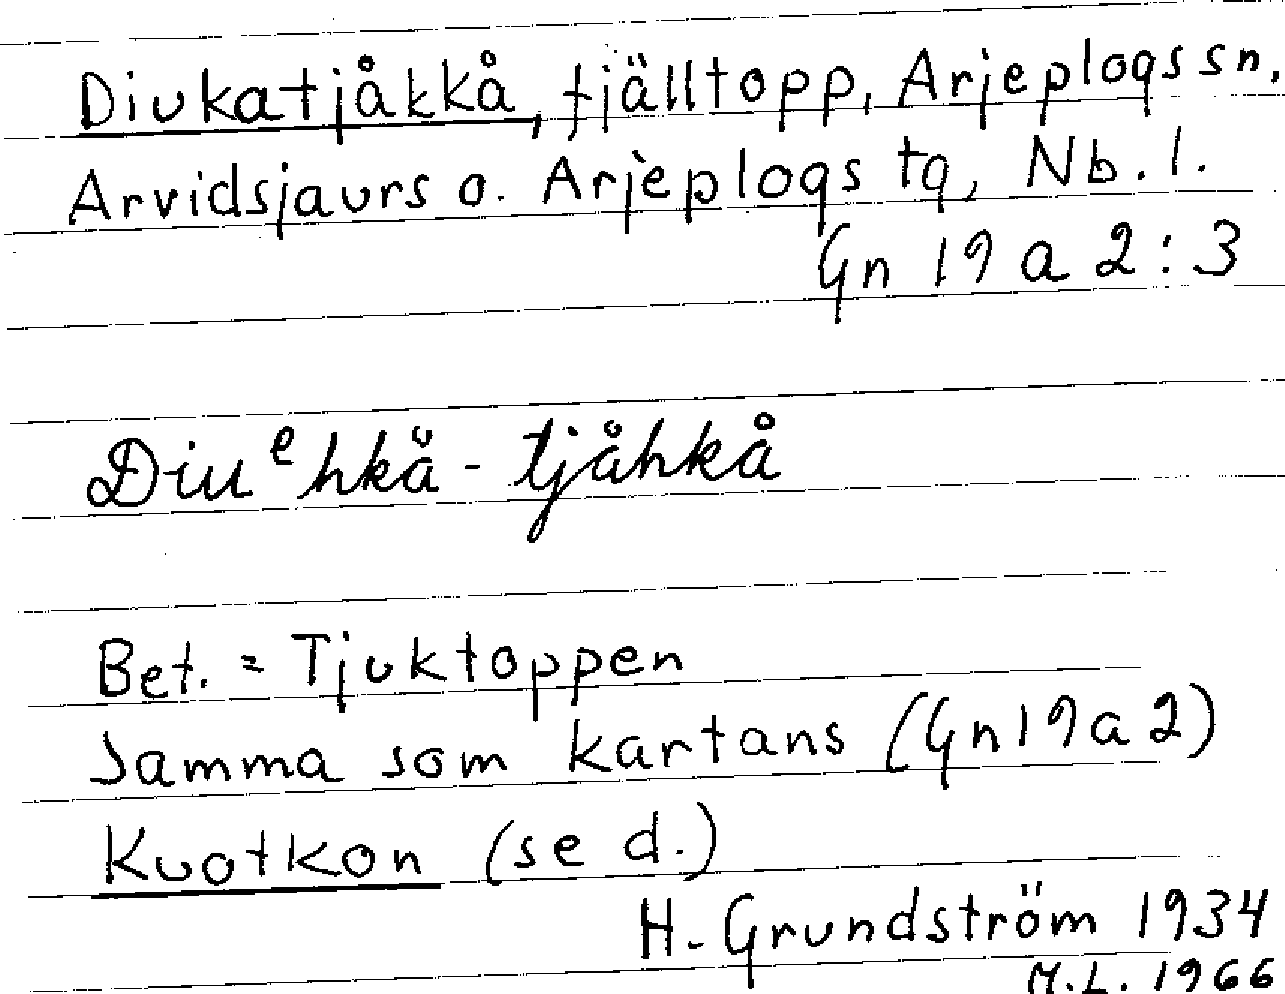 Divkatjåkkå, fjälltopp, Arjeplogs sn.
Arvidsjaurs o. Arjeplogs tg, Nb. l.
Gn 19 a 2:3
Diuᵉhkå - tjåhkå
Bet. = Tjuktoppen
Samma som kartans (Gn 19 a 2)
Kuotkon (se d.)
H. Grundström 1934
M.L. 1966